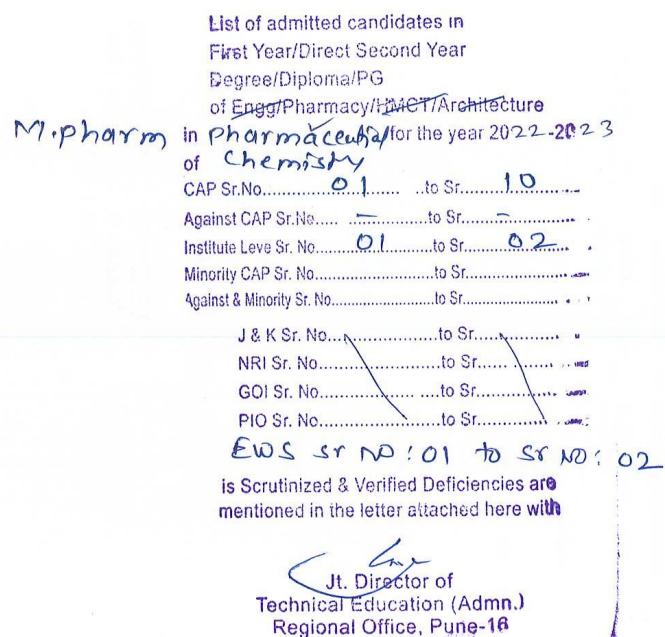 List of admitted candidates in
First Year/Direct Second Year
Degree/Diploma/PG
of Engg/Pharmacy/HMCT/Architecture
M.pharm in Pharmaceutical for the year 2022-2023
of Chemistry
CAP Sr.No............01...... ..to Sr.........10........
Against CAP Sr.No..... – ..........to Sr.....–..............
Institute Leve Sr. No.......01..........to Sr.......02.... .
Minority CAP Sr. No........................to Sr.....................
Against & Minority Sr. No.....................to Sr..................... . .
J & K Sr. No....................to Sr.................
NRI Sr. No........................to Sr.................
GOI Sr. No................. ....to Sr.................
PIO Sr. No........................to Sr.................
EWS Sr NO : 01 to Sr NO : 02
is Scrutinized & Verified Deficiencies are
mentioned in the letter attached here with
Jt. Director of
Technical Education (Admn.)
Regional Office, Pune-16